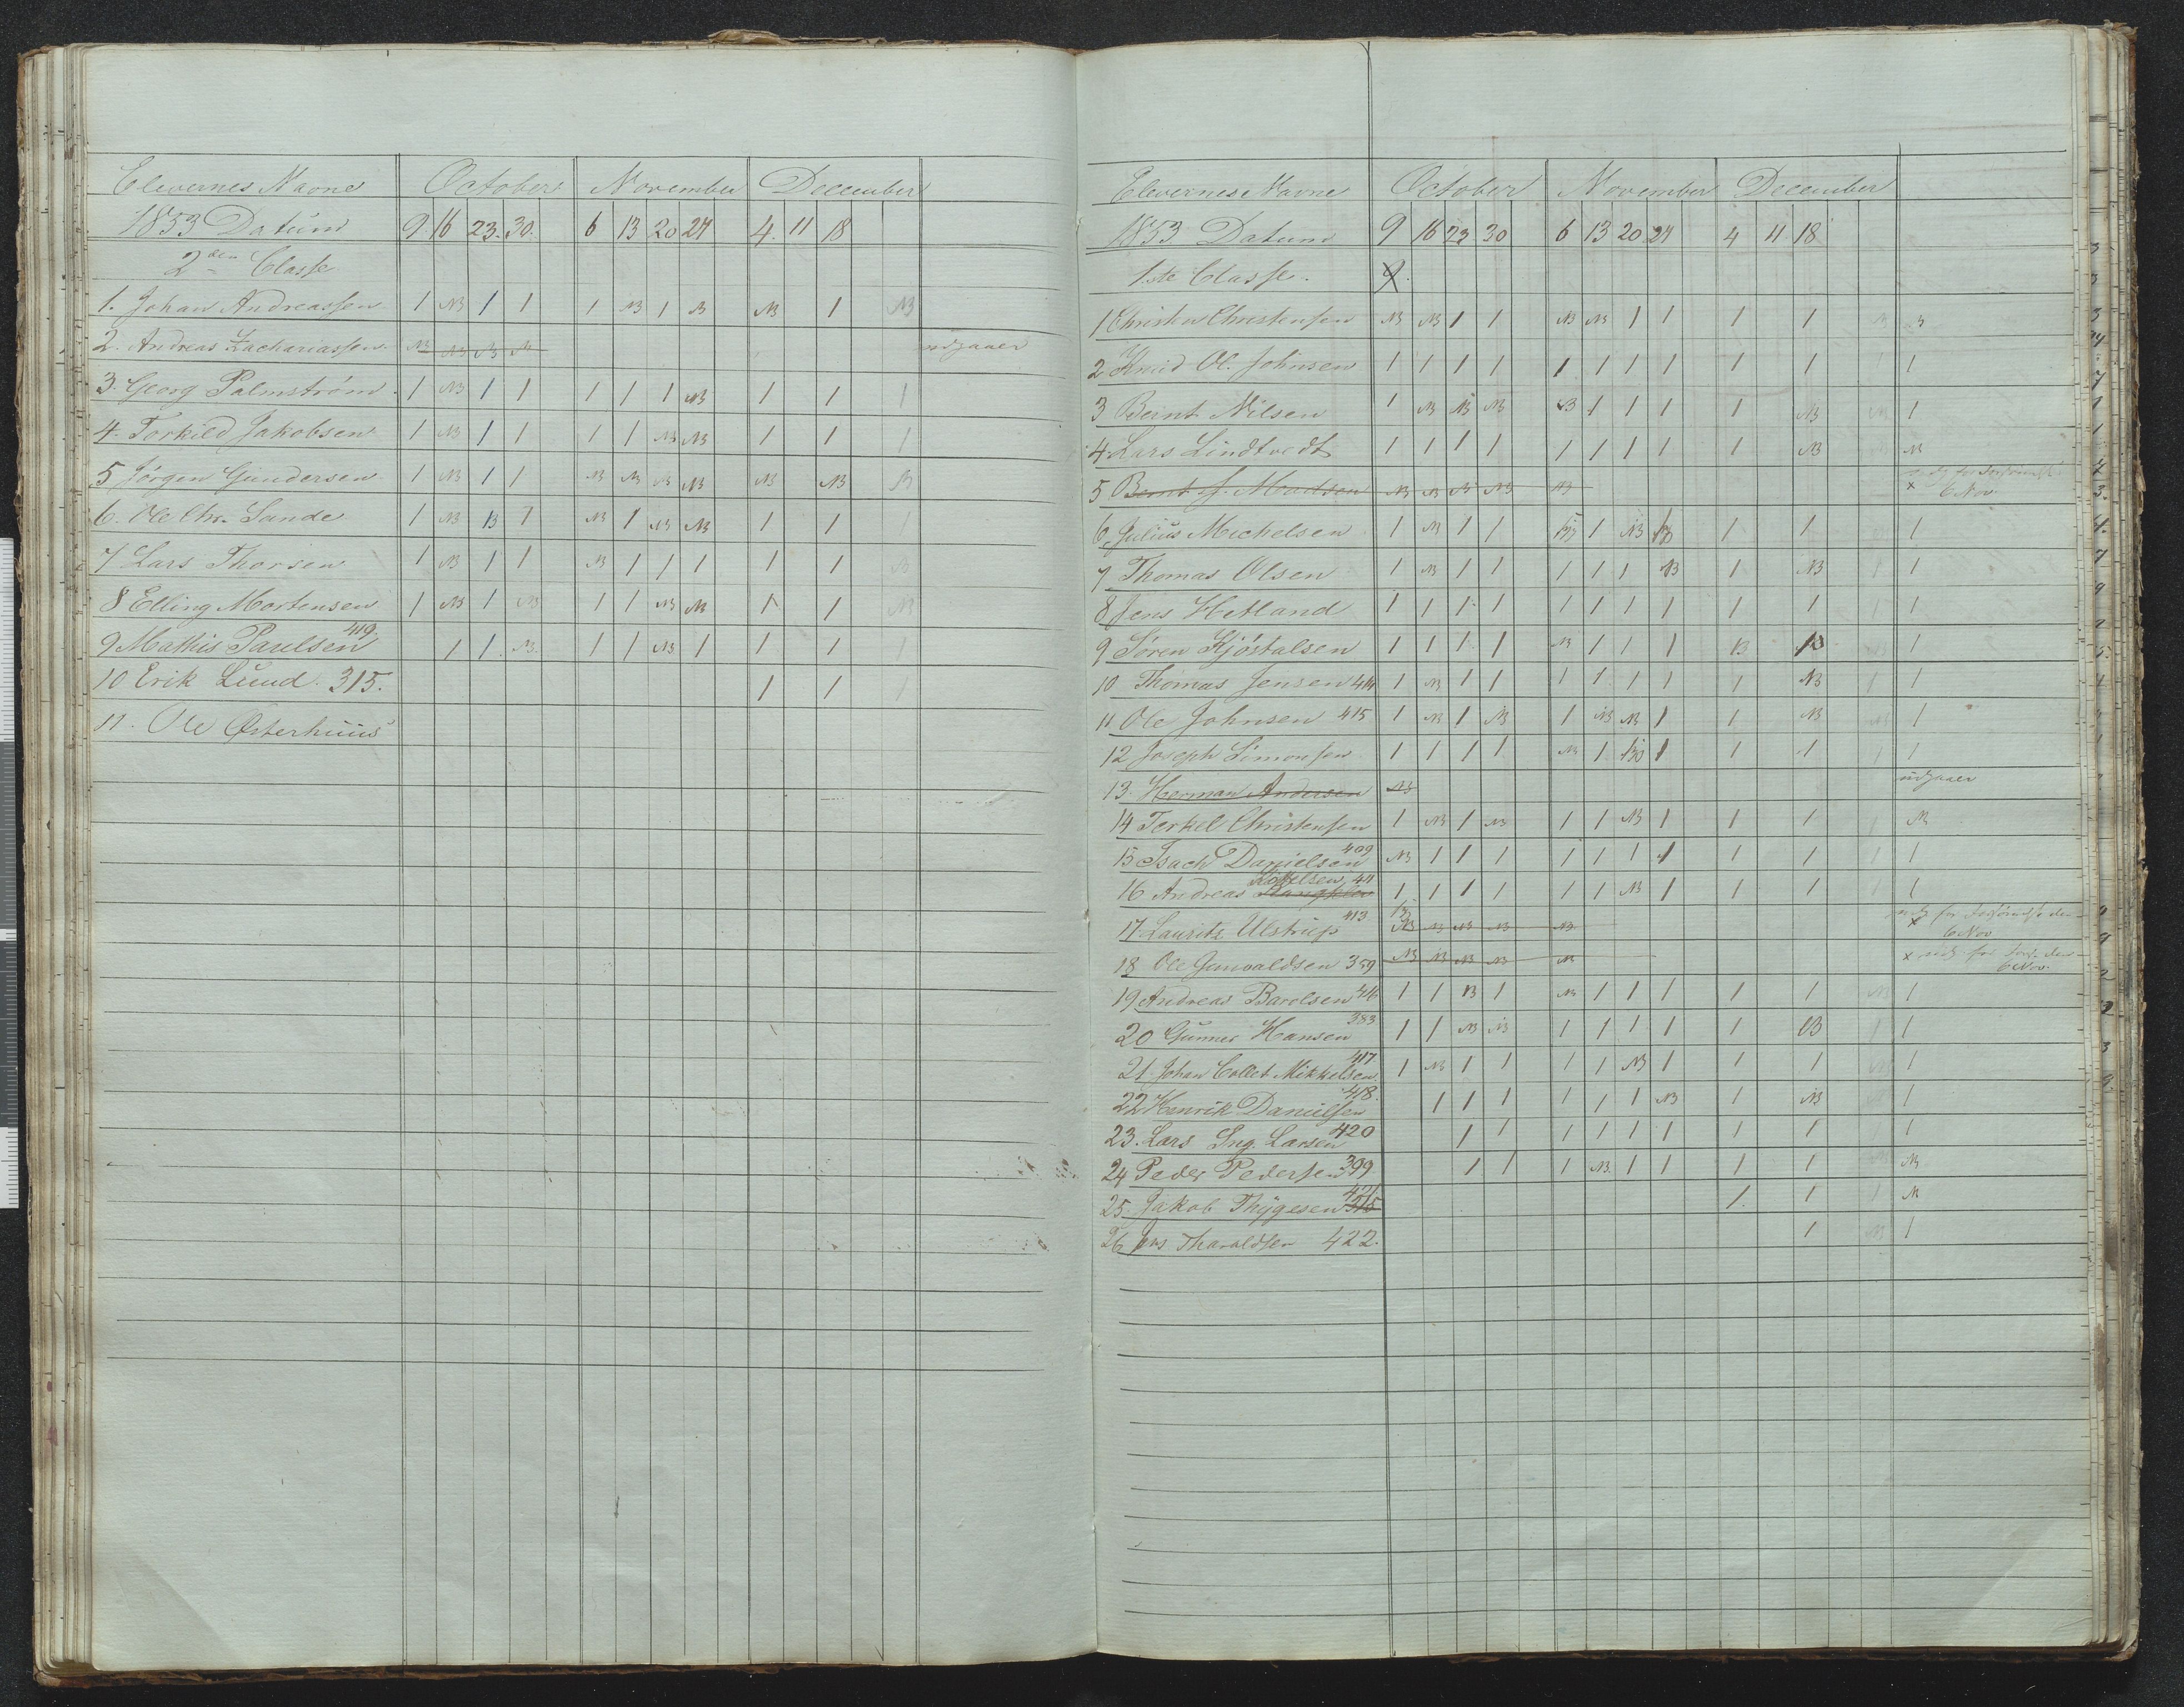 Elevernes Navne October November December
1853 Datum 9. 16 23. 30. 6 13 20 27 4. 11 18
2den Classe
1. Johan Andreassen 1 NB 1 1 1 NB 1 NB NB 1 NB
2. Andreas Zachariassen NB NB NB NB udgaaer
3. Georg Palmstrøm 1 NB 1 1 1 1 1 NB 1 1 1
4. Torkild Jakobsen 1 NB 1 1 1 1 NB NB 1 1 1
5 Jørgen Gundersen 1 NB 1 1 NB NB NB NB NB NB NB
6. Ole Chr. Sande 1 NB NB 1 NB 1 NB NB 1 1 1
7 Lars Thorsen 1 NB 1 1 NB 1 1 1 1 1 NB
8 Elling Mortensen 1 NB 1 NB 1 1 NB NB 1 1 NB
9 Mathis Paulsen 419. 1 1 NB 1 1 NB 1 1 1 1
10 Erik Lund. 315. 1 1 1
11. Ole Østerhuus
Elevernes Navne October November December
1853 Datum 9 16 23 30 6 13 20 27 4 11 18
1ste Classe. 9.
1 Christen Christensen NB NB 1 1 NB NB 1 1 1 1 NB
2 Knud Ol. Johnsen 1 1 1 1 1 1 1 1 1 1 1 1
3 Beint Nilsen 1 NB NB NB NB 1 1 1 1 NB NB 1
4 Lars Lindtvedt 1 1 1 1 1 1 1 1 1 NB NB NB
5 Bernt J. Madsen NB NB NB NB NB x 6 Nov.
6 Julius Michelsen 1 NB 1 1 NB 1 NB NB 1 1 1
7 Thomas Olsen 1 NB 1 1 1 1 1 NB 1 NB 1 1
8 Jens Hetland 1 1 1 1 1 1 1 1 1 1 1 1
9 Søren Kjøstalsen 1 1 1 1 NB 1 1 1 NB NB NB 1
10 Thomas Jensen 414 1 NB 1 1 1 1 1 1 1 NB 1 1
11 Ole Johnsen 415 1 NB 1 NB 1 NB NB 1 1 NB NB 1
12 Joseph Simonsen 1 1 1 1 NB 1 NB 1 1 1 1 1
13. Herman Andersen NB udgaaer
14 Terkel Christensen 1 NB 1 NB 1 1 NB 1 1 1 1 NB
15 Isach Danielsen 409 NB 1 1 1 1 1 1 1 1 1 1 1
16 Andreas 411 1 1 1 1 1 1 NB 1 1 1 1 1
17 Lauritz Ulstrup 413 NB NB NB NB NB x 6 Nov
18 Ole Gunvaldsen 359 NB NB NB NB NB x 6 Nov.
19 Andreas Barolsen 416 1 1 NB 1 NB 1 1 1 1 1 NB 1
20 Gunner Hansen 383 1 1 NB NB 1 1 1 1 1 NB 1 1
21. Johan Collet Mikkelsen 417 1 NB 1 1 1 1 NB 1 1 1 NB 1
22 Henrik Danielsen 418. 1 1 1 1 1 1 NB 1 NB NB 1
23. Lars Ing. Larsen 420 1 1 1 1 1 1 1 1 1 1
24 Peder Pedersen 399 1 1 1 NB 1 1 1 1 NB NB
25 Jakob Thygesen 421 315 1. 1 1 NB
26 Jens Tharaldsen 422. 1 NB 1